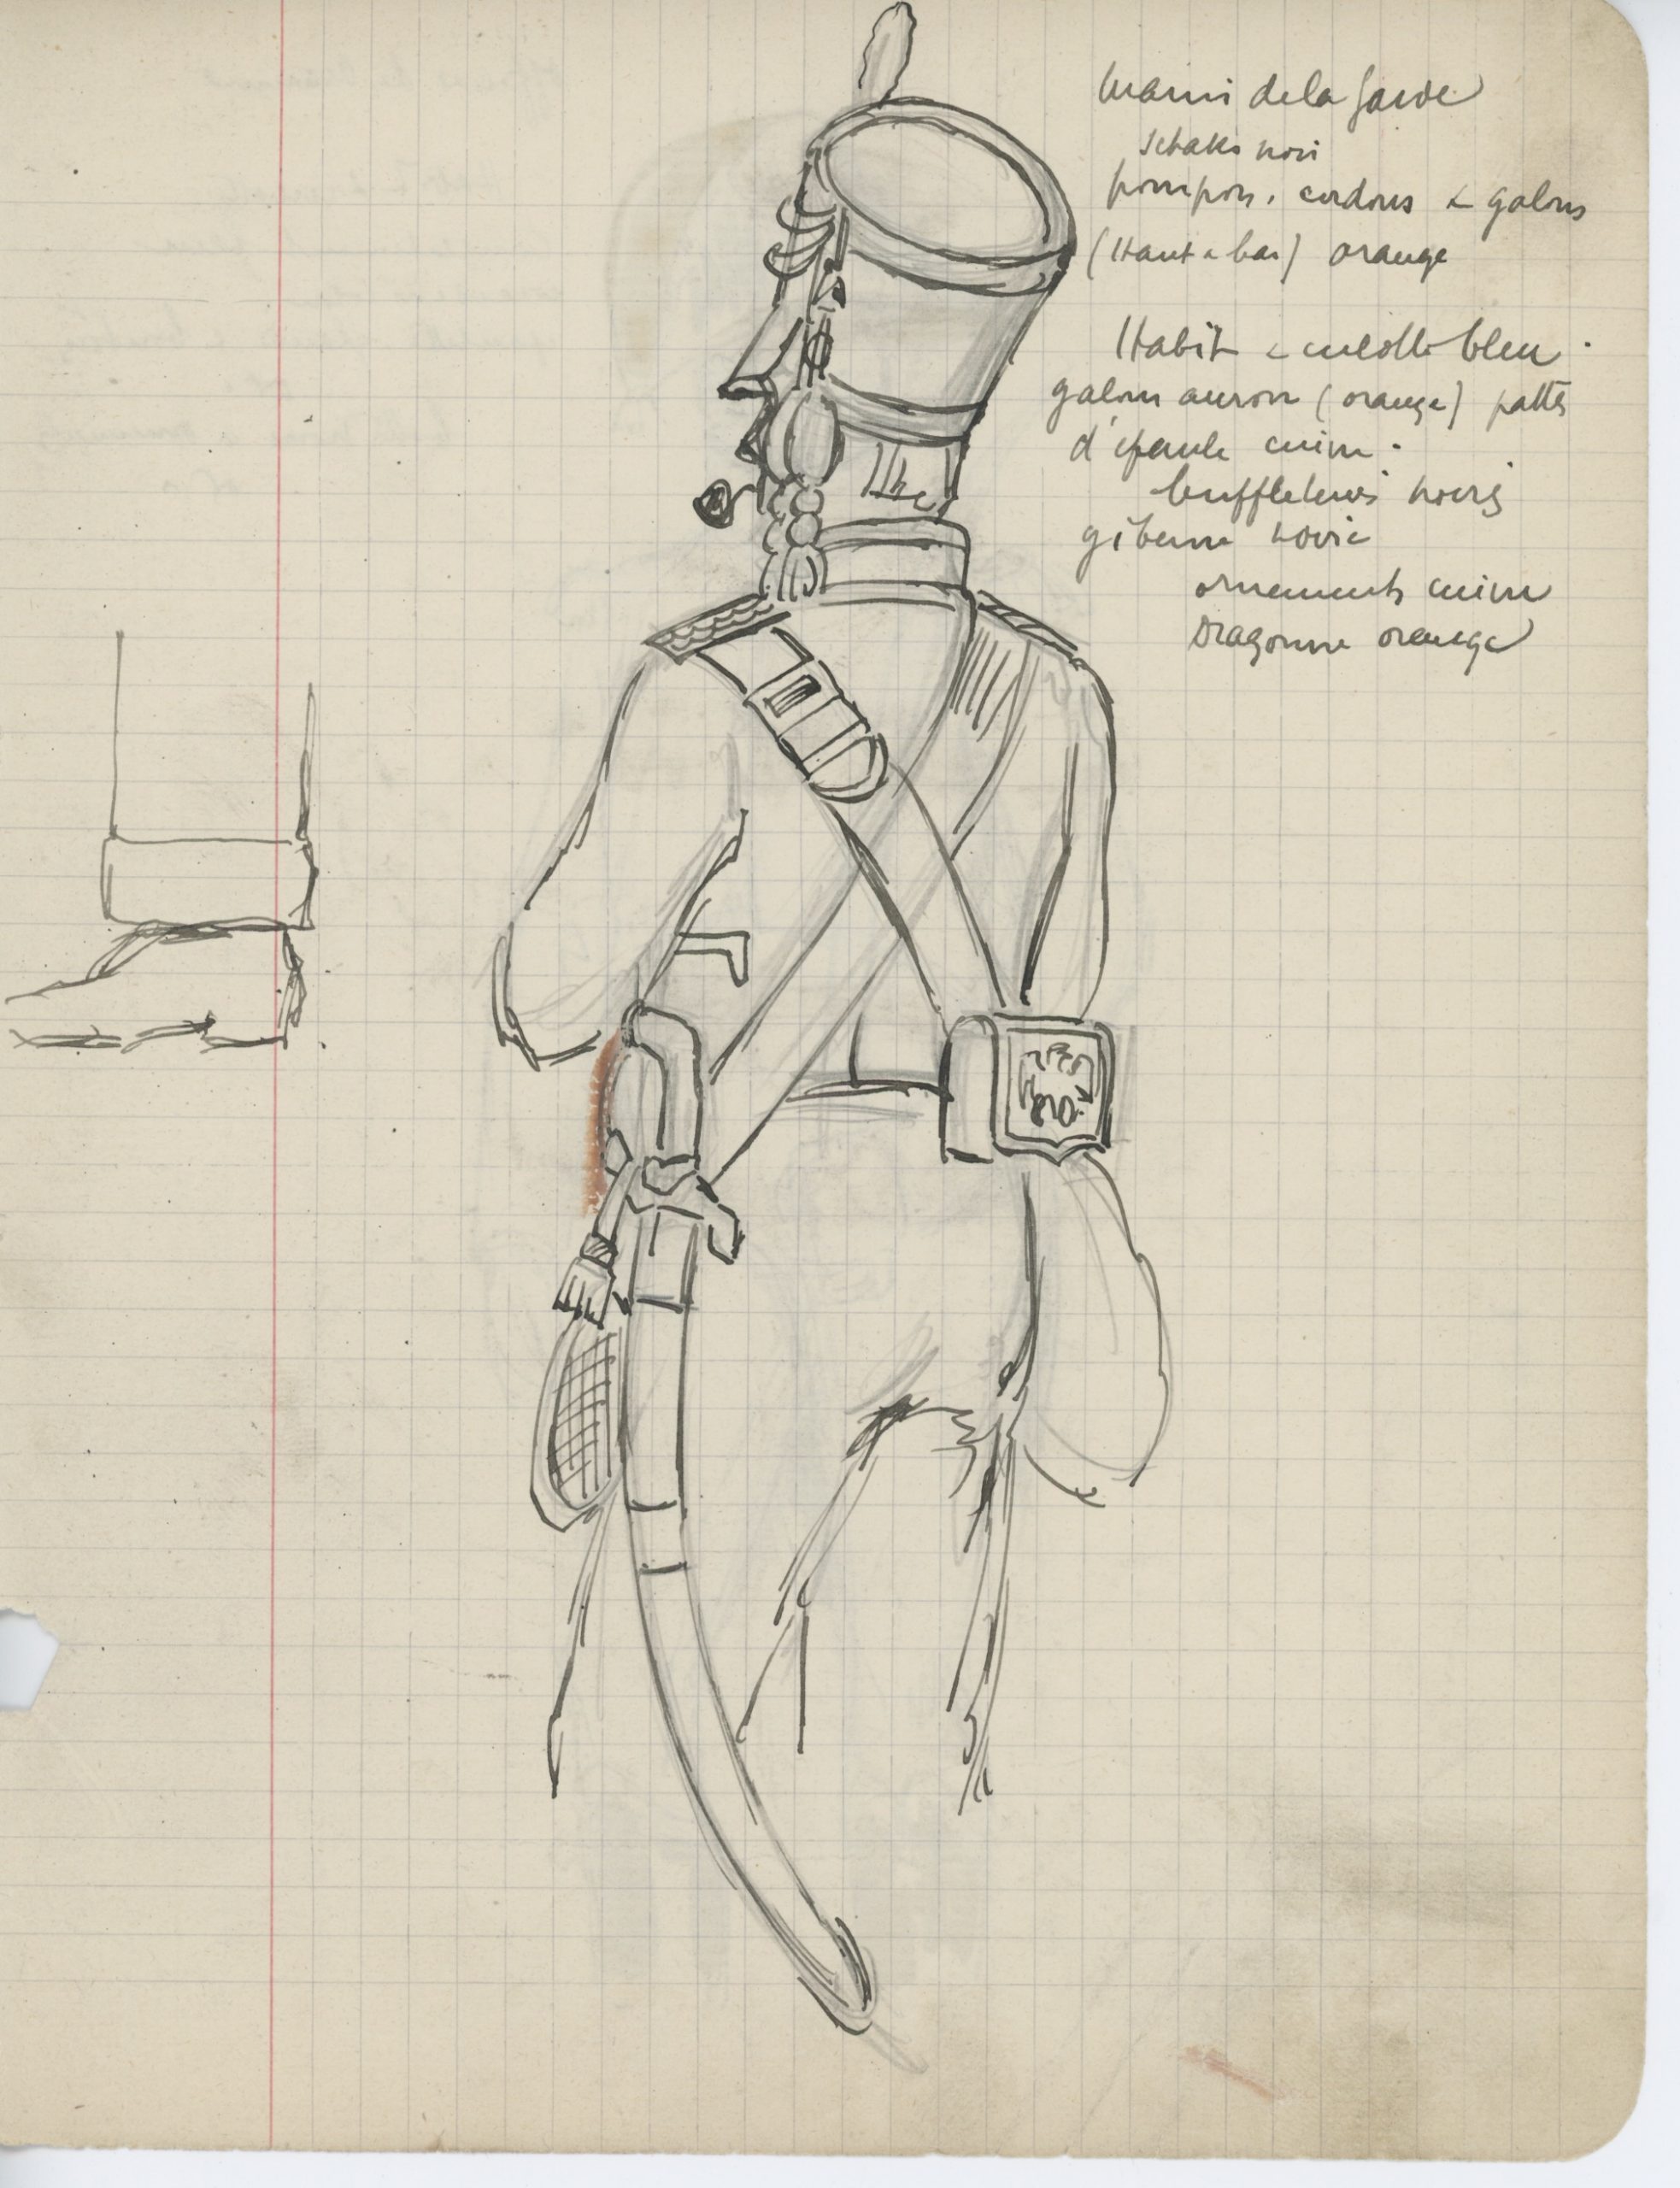 Marin de la Garde
Schako noir
pompon, cordons & galons
(Haut & bas) orange
Habit & culotte bleu.
galons aurore (orange) pattes
d'épaule cuivre.
buffleteries noires
giberne noire
ornements cuivre
Dragonne orange